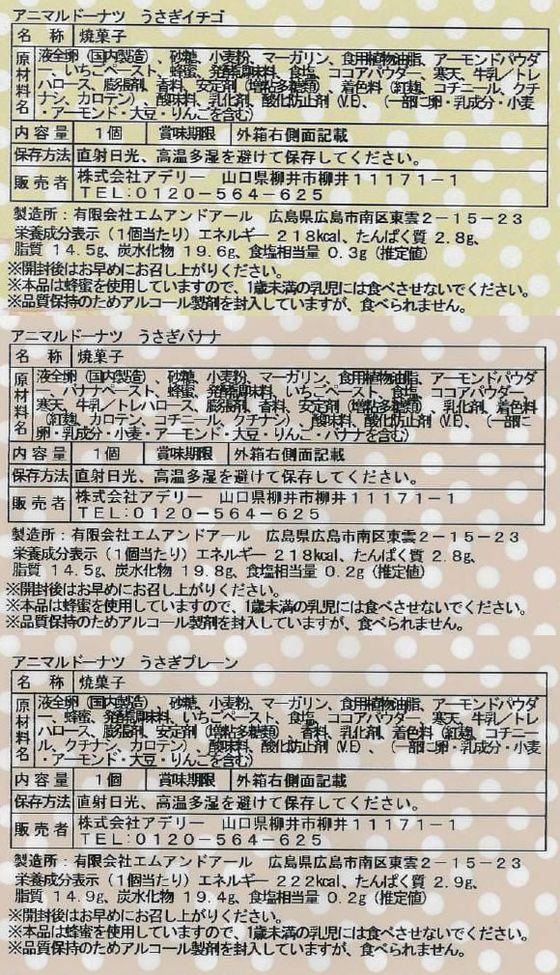 アニマルドーナツ　うさぎイチゴ
名　称　焼菓子
原材料名　液全卵（国内製造）、砂糖、小麦粉、マーガリン、食用植物油脂、アーモンドパウダ
ー、いちごペースト、蜂蜜、発酵調味料、食塩、ココアパウダー、寒天、牛乳／トレ
ハロース、膨張剤、香料、安定剤（増粘多糖類）、着色料（紅麹、コチニール、クチ
ナシ、カロテン）、酸味料、乳化剤、酸化防止剤（V.E）、（一部に卵・乳成分・小麦
・アーモンド・大豆・りんごを含む）
内容量　１個　賞味期限　外箱右側面記載
保存方法　直射日光、高温多湿を避けて保存してください。
販売者　株式会社アデリー　山口県柳井市柳井１１１７１－１
ＴＥＬ：０１２０－５６４－６２５
製造所：有限会社エムアンドアール　広島県広島市南区東雲２－１５－２３
栄養成分表示（１個当たり）エネルギー ２１８kcal、たんぱく質 ２.８g、
脂質 １４.５g、炭水化物 １９.６g、食塩相当量 ０.３g（推定値）
※開封後はお早めにお召し上がりください。
※本品は蜂蜜を使用していますので、1歳未満の乳児には食べさせないでください。
※品質保持のためアルコール製剤を封入していますが、食べられません。
アニマルドーナツ　うさぎバナナ
名　称　焼菓子
原材料名　液全卵（国内製造）、砂糖、小麦粉、マーガリン、食用植物油脂、アーモンドパウダ
ー、バナナペースト、蜂蜜、発酵調味料、いちごペースト、食塩、ココアパウダー、
寒天、牛乳／トレハロース、膨張剤、香料、安定剤（増粘多糖類）、乳化剤、着色料
（紅麹、カロテン、コチニール、クチナシ）、酸味料、酸化防止剤（V.E）、（一部に
卵・乳成分・小麦・アーモンド・大豆・りんご・バナナを含む）
内容量　１個　賞味期限　外箱右側面記載
保存方法　直射日光、高温多湿を避けて保存してください。
販売者　株式会社アデリー　山口県柳井市柳井１１１７１－１
ＴＥＬ：０１２０－５６４－６２５
製造所：有限会社エムアンドアール　広島県広島市南区東雲２－１５－２３
栄養成分表示（１個当たり）エネルギー ２１８kcal、たんぱく質 ２.８g、
脂質 １４.５g、炭水化物 １９.８g、食塩相当量 ０.２g（推定値）
※開封後はお早めにお召し上がりください。
※本品は蜂蜜を使用していますので、1歳未満の乳児には食べさせないでください。
※品質保持のためアルコール製剤を封入していますが、食べられません。
アニマルドーナツ　うさぎプレーン
名　称　焼菓子
原材料名　液全卵（国内製造）、砂糖、小麦粉、マーガリン、食用植物油脂、アーモンドパウダ
ー、蜂蜜、発酵調味料、いちごペースト、食塩、ココアパウダー、寒天、牛乳／トレ
ハロース、膨張剤、安定剤（増粘多糖類）、香料、乳化剤、着色料（紅麹、コチニー
ル、クチナシ、カロテン）、酸味料、酸化防止剤（V.E）、（一部に卵・乳成分・小麦
・アーモンド・大豆・りんごを含む）
内容量　１個　賞味期限　外箱右側面記載
保存方法　直射日光、高温多湿を避けて保存してください。
販売者　株式会社アデリー　山口県柳井市柳井１１１７１－１
ＴＥＬ：０１２０－５６４－６２５
製造所：有限会社エムアンドアール　広島県広島市南区東雲２－１５－２３
栄養成分表示（１個当たり）エネルギー ２２２kcal、たんぱく質 ２.９g、
脂質 １４.９g、炭水化物 １９.４g、食塩相当量 ０.２g（推定値）
※開封後はお早めにお召し上がりください。
※本品は蜂蜜を使用していますので、1歳未満の乳児には食べさせないでください。
※品質保持のためアルコール製剤を封入していますが、食べられません。